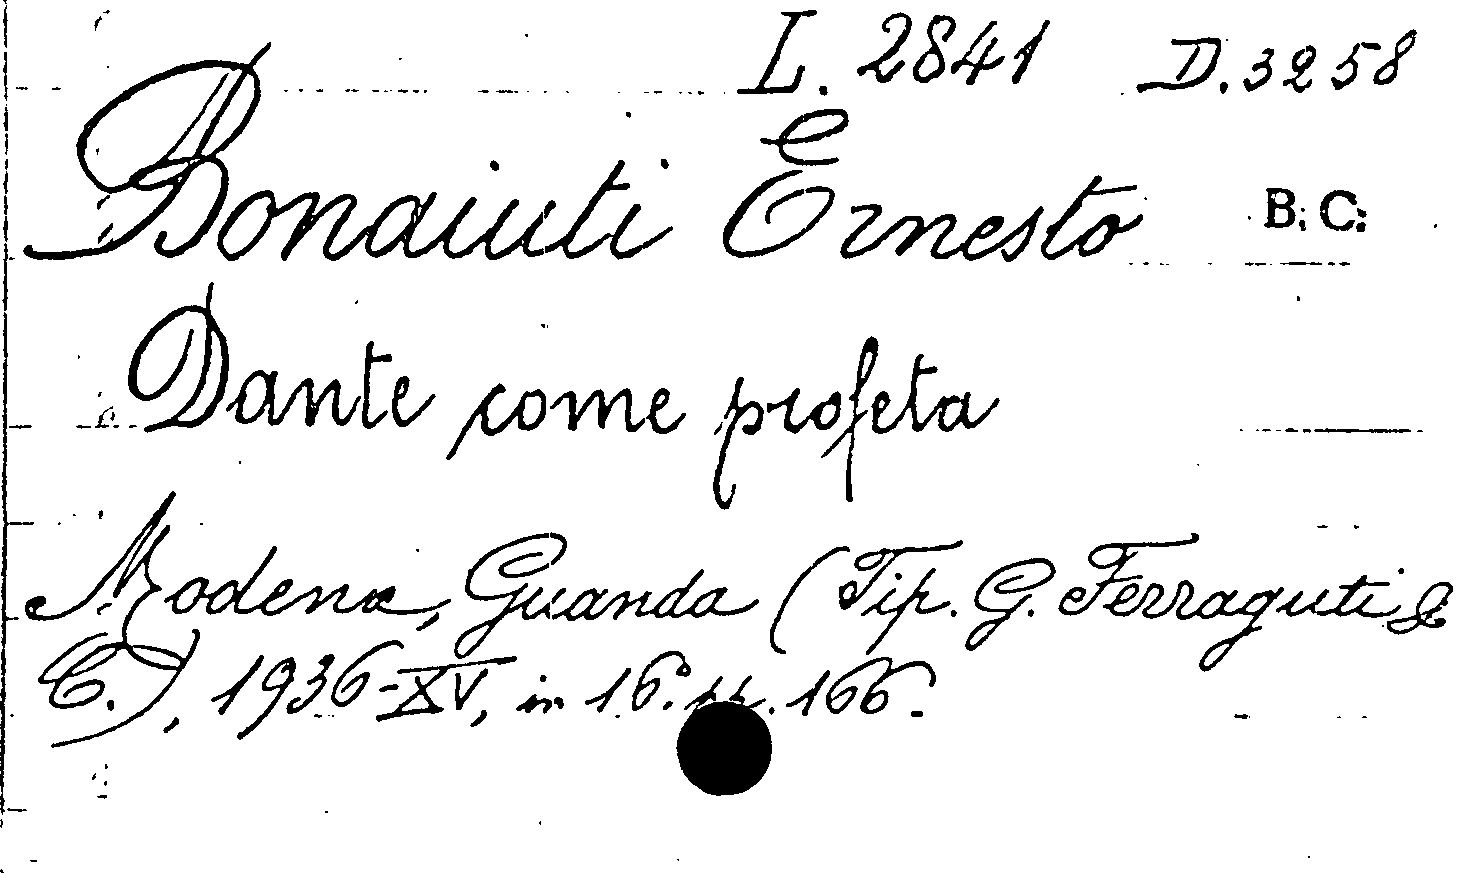 L. 2841 D. 3258
Bonaiuti Ernesto B. C.
Dante come profeta
Modena, Guanda (Tip. G. Ferraguti &
C.), 1936-XV, in 16°. pp. 166.